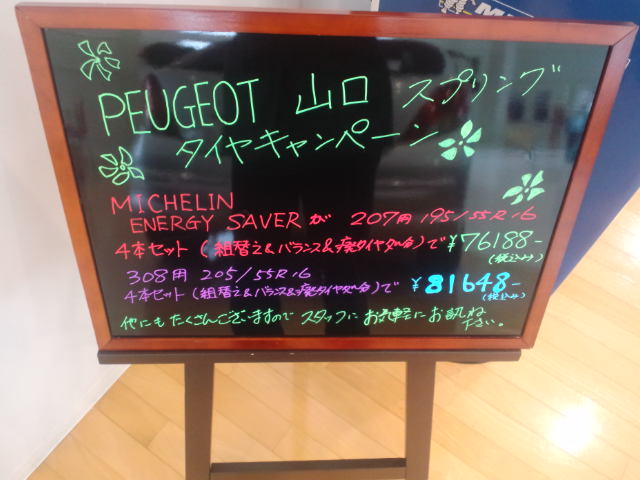 PEUGEOT 山口 スプリング
タイヤキャンペーン
MICHELIN
ENERGY SAVER が 207用 195/55R16
4本セット (組替え&バランス&廃タイヤ処分)で ¥76188-
(税込み)
308用 205/55R16
4本セット (組替え&バランス&廃タイヤ処分)で ¥81648-
(税込み)
他にもたくさんございますので スタッフに お気軽に お訊ね
下さい。